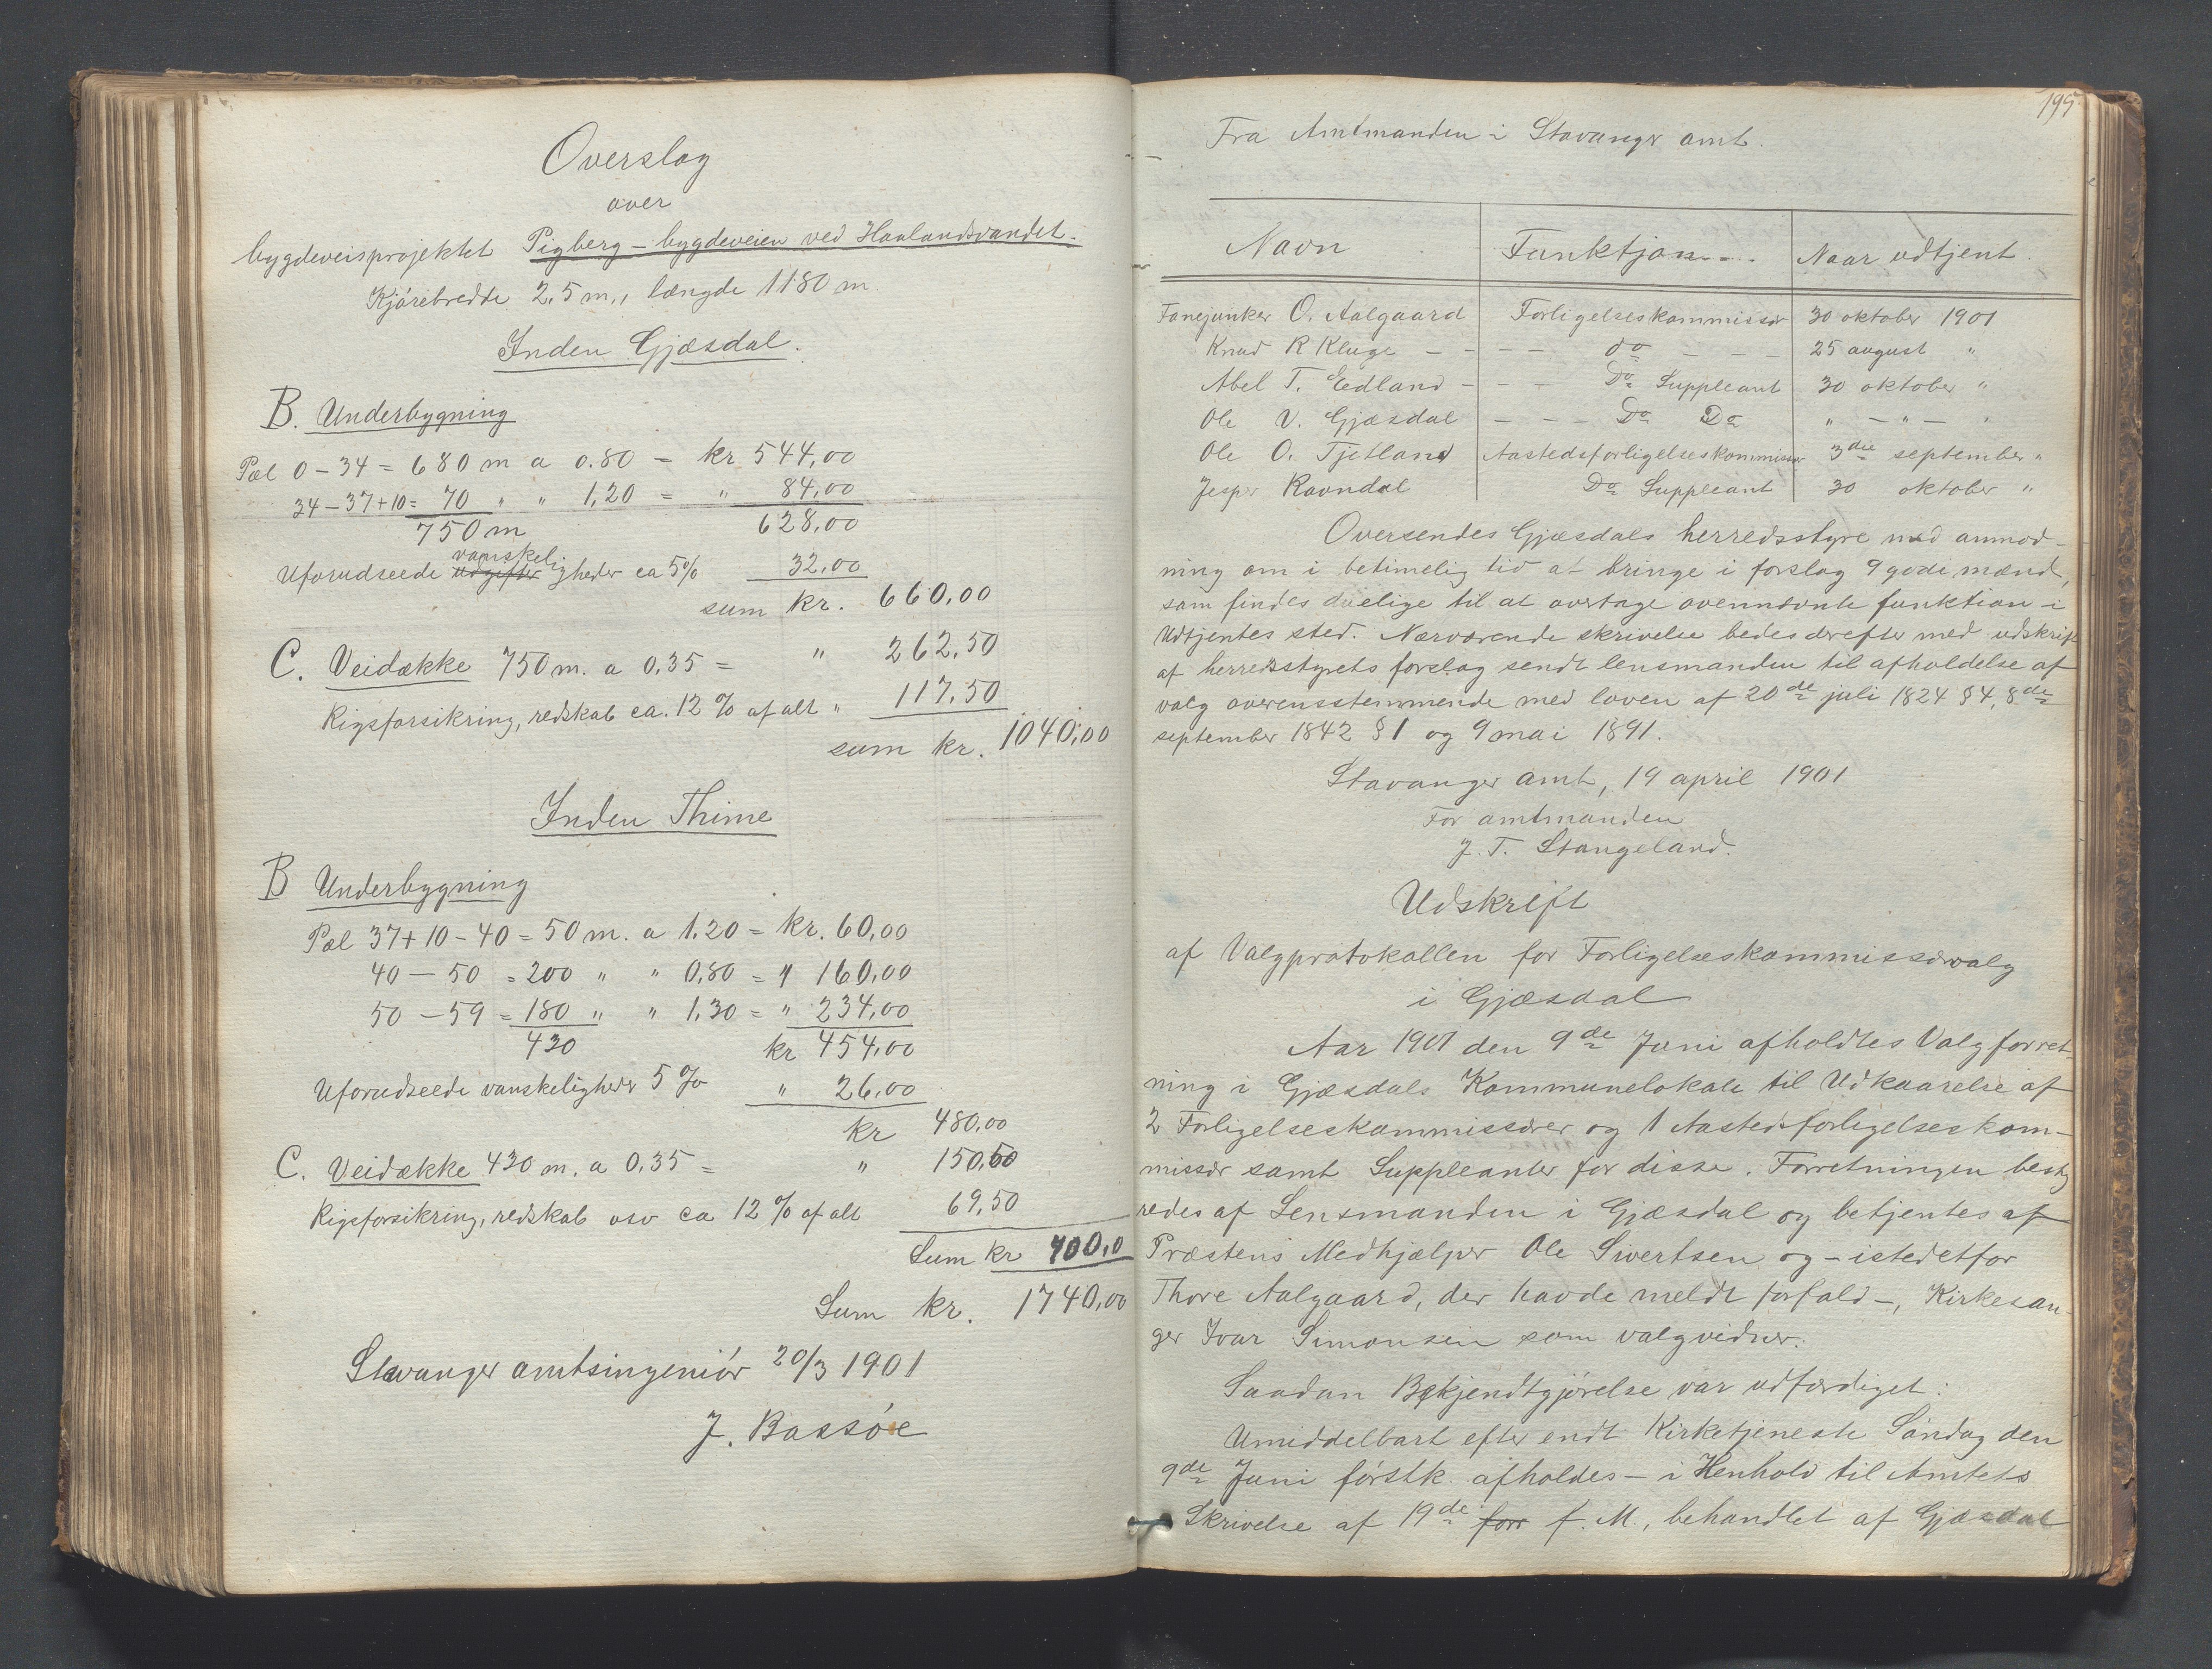 Overslag
over
bygdeveisprojektet Pigberg - bygdeveien ved Haalandsvandet.
Kjørebredde 2,5 m., længde 1180 m.
Inden Gjæsdal.
B. Underbygning
Pæl 0 - 34 = 680 m a 0.80 = kr 544,00
34 - 37 + 10 = 70 " " 1,20 = " 84,00
750 m 628,00
Uforudseede udgifter vanskeligheder ca 5% 32,00
sum kr. 660,00
C. Veidække 750 m. a 0,35 = " 262,50
Rigsforsikring, redskab ca. 12 % af alt " 117,50
sum kr. 1040,00
Inden Thime
B Underbygning
Pæl 37 + 10 - 40 = 50 m. a 1.20 = kr. 60,00
40 - 50 = 200 " " 0,80 = " 160,00
50 - 59 = 180 " " 1,30 = " 234,00
430 kr 454,00
Uforudseede vanskeligheder 5 % " 26,00
kr 480,00
C. Veidække 430 m. a 0,35 = " 150,50
Rigsforsikring, redskab osv ca 12 % af alt 69,50
Sum kr 700,0
Sum kr. 1740,00
Stavanger amtsingeniør 20/3 1901
J. Bassøe
195
Fra Amtmanden i Stavanger amt.
Navn Funktjon Naar udtjent.
Fanejunker O. Aalgaard Forligelseskommissær 30 oktober 1901
Knud R Kluge - - - - do - - - 25 august "
Abel T. Eedland - - - Do Suppleant 30 oktober "
Ole V. Gjæsdal - - - Do Do " - " - "
Ole O. Tjetland Aastedsforligelseskommissær 3die september "
Jesper Ravndal Do Suppleant 30 oktober "
Oversendes Gjæsdals herredsstyre med anmod-
ning om i betimelig tid at bringe i forslag 9 gode mænd,
som findes duelige til at overtage ovennævnte funktion i
Udtjentes sted. Nærværende skrivelse bedes derefter med udskrift
af herredsstyrets forslag sendt lensmanden til afholdelse af
valg overensstemmende med loven af 20de juli 1824 § 4, 8de
september 1842 § 1 og 9 mai 1891.
Stavanger amt, 19 april 1901
For amtmanden
J. T. Stangeland.
Udskrift
af Valgprotokollen for Forligelseskommissærvalg
i Gjæsdal
Aar 1901 den 9de Juni afholdtes Valgforret-
ning i Gjæsdals Kommunelokale til Udkaarelse af
2 Forligelseskommissærer og 1 Aastedsforligelseskom-
missær samt Suppleanter for disse. Forretningen besty
redes af Lensmanden i Gjæsdal og betjentes af
Præstens Medhjælper Ole Sivertsen og - istedetfor
Thore Aalgaard, der havde meldt forfald -, Kirkesan-
ger Ivar Simonsen som valgvidner.
Saadan Bekjendtgjørelse var udfærdiget:
Umiddelbart efter endt Kirketjeneste Søndag den
9de Juni førstk. afholdes - i Henhold til Amtets
Skrivelse af 19de forr f. M., behandlet af Gjæsdal